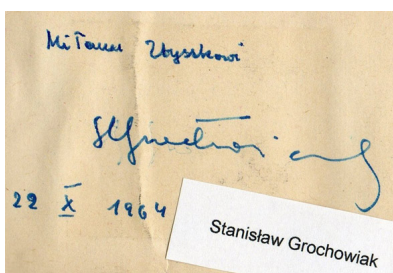 Miłemu Zbyszkowi
StGrochowiak
22 X 1964
Stanisław Grochowiak